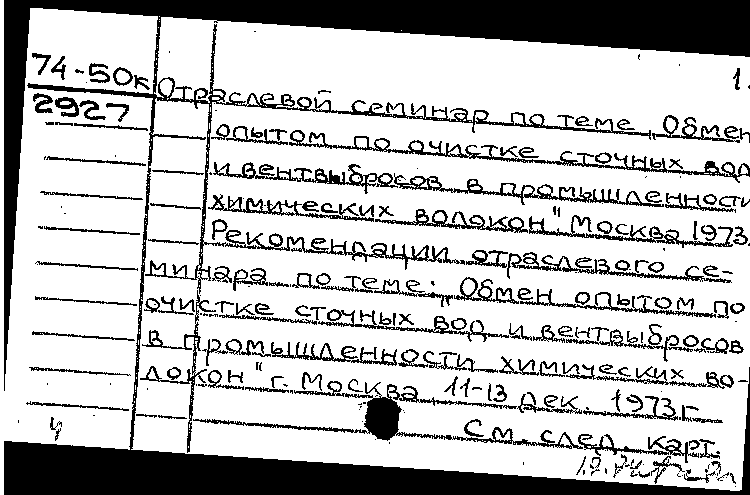 1.
74-50к Отраслевой семинар по теме „Обмен
2927
опытом по очистке сточных вод
и вентвыбросов в промышленности
химических волокон". Москва, 1973.
Рекомендации отраслевого се-
минара по теме: „Обмен опытом по
очистке сточных вод и вентвыбросов
в промышленности химических во-
локон" г. Москва, 11-13 дек. 1973г
См. след. карт.
ч